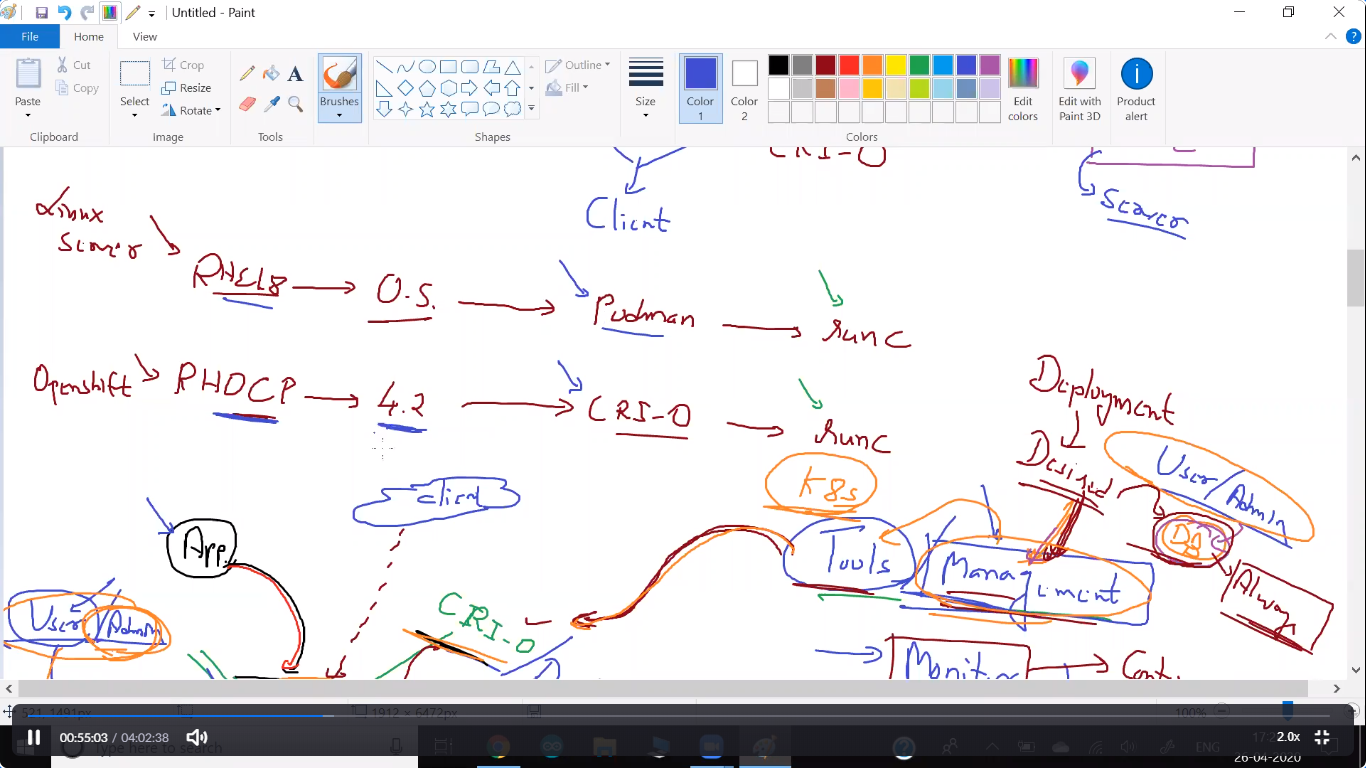 Untitled - Paint
File Home View
Paste
Cut
Copy
Clipboard
Select
Crop
Resize
Rotate
Image
A
Tools
Brushes
Shapes
Outline
Fill
Size
Color 1
Color 2
Colors
Edit colors
Edit with Paint 3D
Product alert
CRI-O
Client
Server
Linux
Server
RHEL8 O.S. Podman runc
Openshift RHOCP 4.2 CRI-O runc
Deployment
Desired
User/Admin
DB
Always
K8s
client
App
Tools
Management
User/Admin
CRI-O
521, 1491px
1912 × 6472px
100%
Type here to search
00:55:03 / 04:02:38
2.0x
ENG
26-04-2020